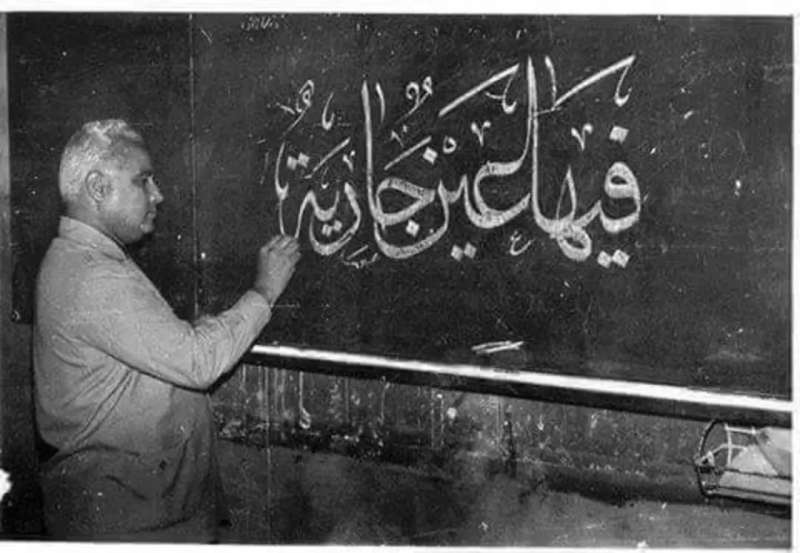 فِيهَا عَيْنٌ جَارِيَةٌ